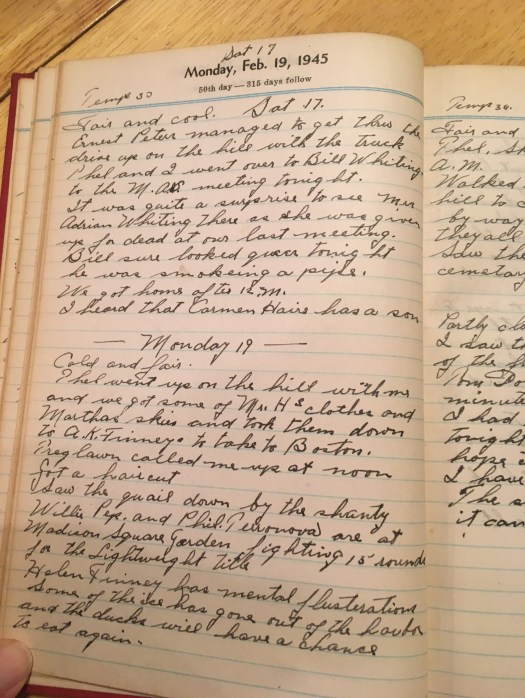 Sat 17
Monday, Feb. 19, 1945
50th day — 315 days follow
Temp 30
Fair and cool. Sat 17.
Ernest Peter managed to get thru the
drive up on the hill with the truck
Phel and I went over to Bill Whitings
to the M.A. meeting tonight.
It was quite a surprise to see Mrs
Adrian Whiting there as she was given
up for dead at our last meeting.
Bill sure looked queer tonight
he was smokeing a pipe.
We got home after 12 M.
I heard that Carmen Haire has a son
— Monday 19 —
Cold and fair.
Phel went up on the hill with me
and we got some of Mrs. H's clothes and
Marthas skies and took them down
to A.K. Finneys to take to Boston.
called me up at noon
Got a haircut
Saw the quail down by the shanty
Willie Pep. and Phil. Terronova are at
Madison Square Garden fighting 15 rounds
for the Lightweight title
Helen Finney has mental flusterations
Some of the ice has gone out of the harbor
and the ducks will have a chance
to eat again.
Temp 34.
Fair and
Phel.
A.M.
Walked
hill to
by way
they all
Saw the
cemetary
Partly clo
I saw
of the
Tom
minute
I had
tonight
hope
I have
The s
it can